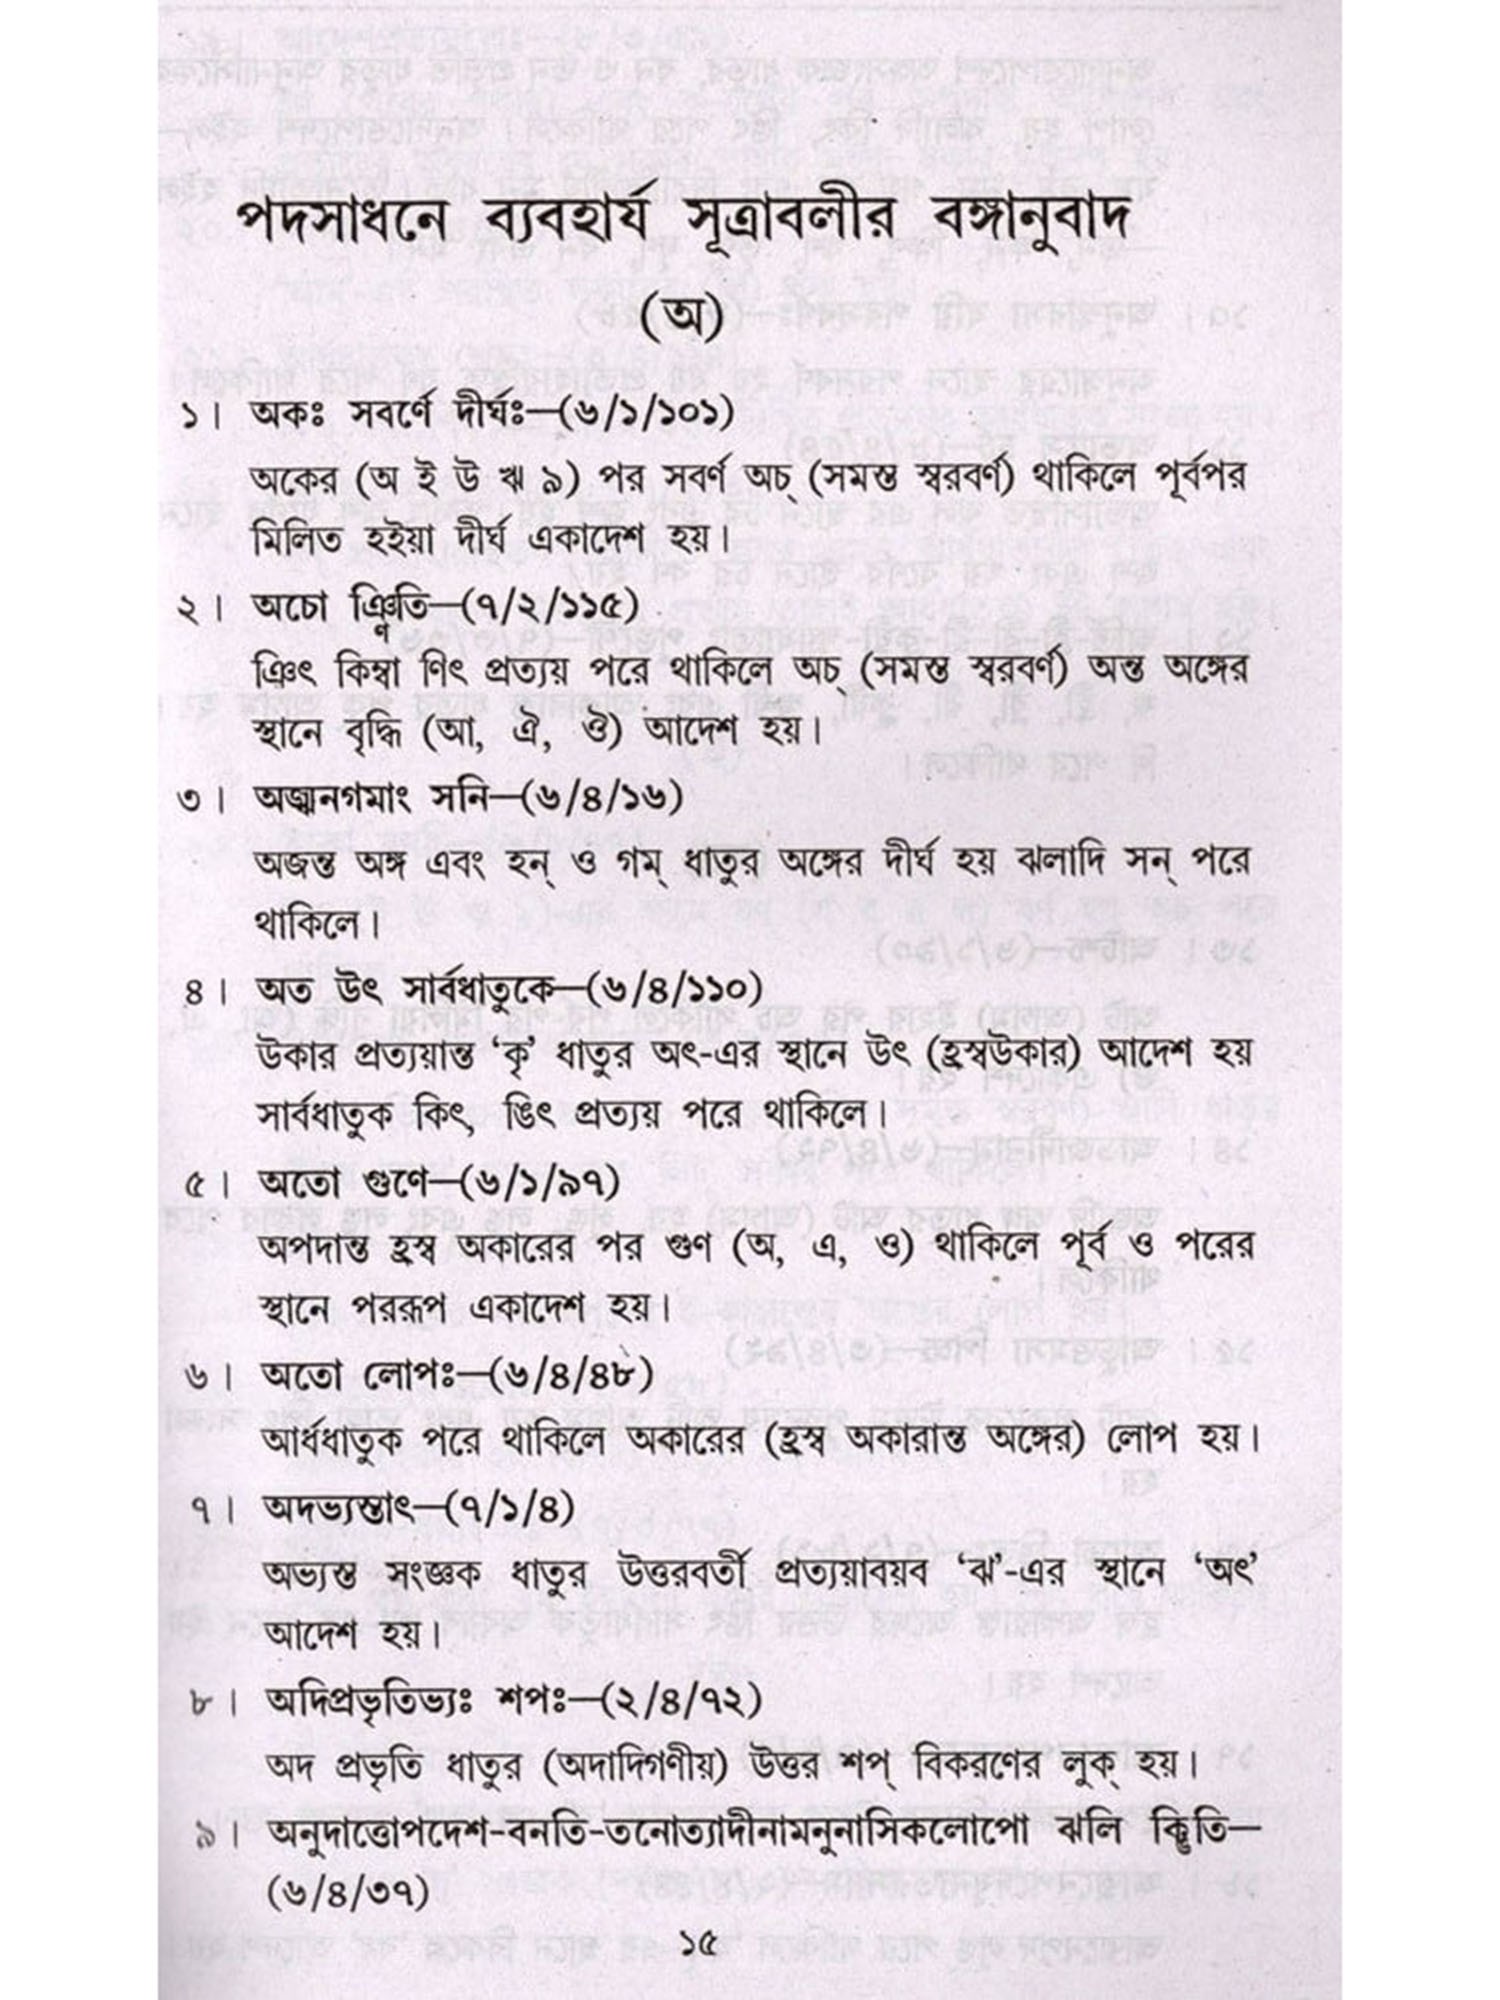 পদসাধনে ব্যবহার্য সূত্রাবলীর বঙ্গানুবাদ
(অ)
১। অকঃ সবর্ণে দীর্ঘঃ—(৬/১/১০১)
অকের (অ ই উ ঋ ৯) পর সবর্ণ অচ্ (সমস্ত স্বরবর্ণ) থাকিলে পূর্বপর
মিলিত হইয়া দীর্ঘ একাদেশ হয়।
২। অচো ঞ্ণিতি—(৭/২/১১৫)
ঞিৎ কিম্বা ণিৎ প্রত্যয় পরে থাকিলে অচ্ (সমস্ত স্বরবর্ণ) অন্ত অঙ্গের
স্থানে বৃদ্ধি (আ, ঐ, ঔ) আদেশ হয়।
৩। অজ্ঝনগমাং সনি—(৬/৪/১৬)
অজন্ত অঙ্গ এবং হন্ ও গম্ ধাতুর অঙ্গের দীর্ঘ হয় ঝলাদি সন্ পরে
থাকিলে।
৪। অত উৎ সার্বধাতুকে—(৬/৪/১১০)
উকার প্রত্যয়ান্ত ‘কৃ’ ধাতুর অৎ-এর স্থানে উৎ (হ্রস্বউকার) আদেশ হয়
সার্বধাতুক কিৎ, ঙিৎ প্রত্যয় পরে থাকিলে।
৫। অতো গুণে—(৬/১/৯৭)
অপদান্ত হ্রস্ব অকারের পর গুণ (অ, এ, ও) থাকিলে পূর্ব ও পরের
স্থানে পররূপ একাদেশ হয়।
৬। অতো লোপঃ—(৬/৪/৪৮)
আর্ধধাতুক পরে থাকিলে অকারের (হ্রস্ব অকারান্ত অঙ্গের) লোপ হয়।
৭। অদভ্যস্তাৎ—(৭/১/৪)
অভ্যস্ত সংজ্ঞক ধাতুর উত্তরবর্তী প্রত্যয়াবয়ব ‘ঝ’-এর স্থানে ‘অৎ’
আদেশ হয়।
৮। অদিপ্রভৃতিভ্যঃ শপঃ—(২/৪/৭২)
অদ প্রভৃতি ধাতুর (অদাদিগণীয়) উত্তর শপ্ বিকরণের লুক্ হয়।
৯। অনুদাত্তোপদেশ-বনতি-তনোত্যাদীনামনুনাসিকলোপো ঝলি ক্ঙিতি—
(৬/৪/৩৭)
১৫